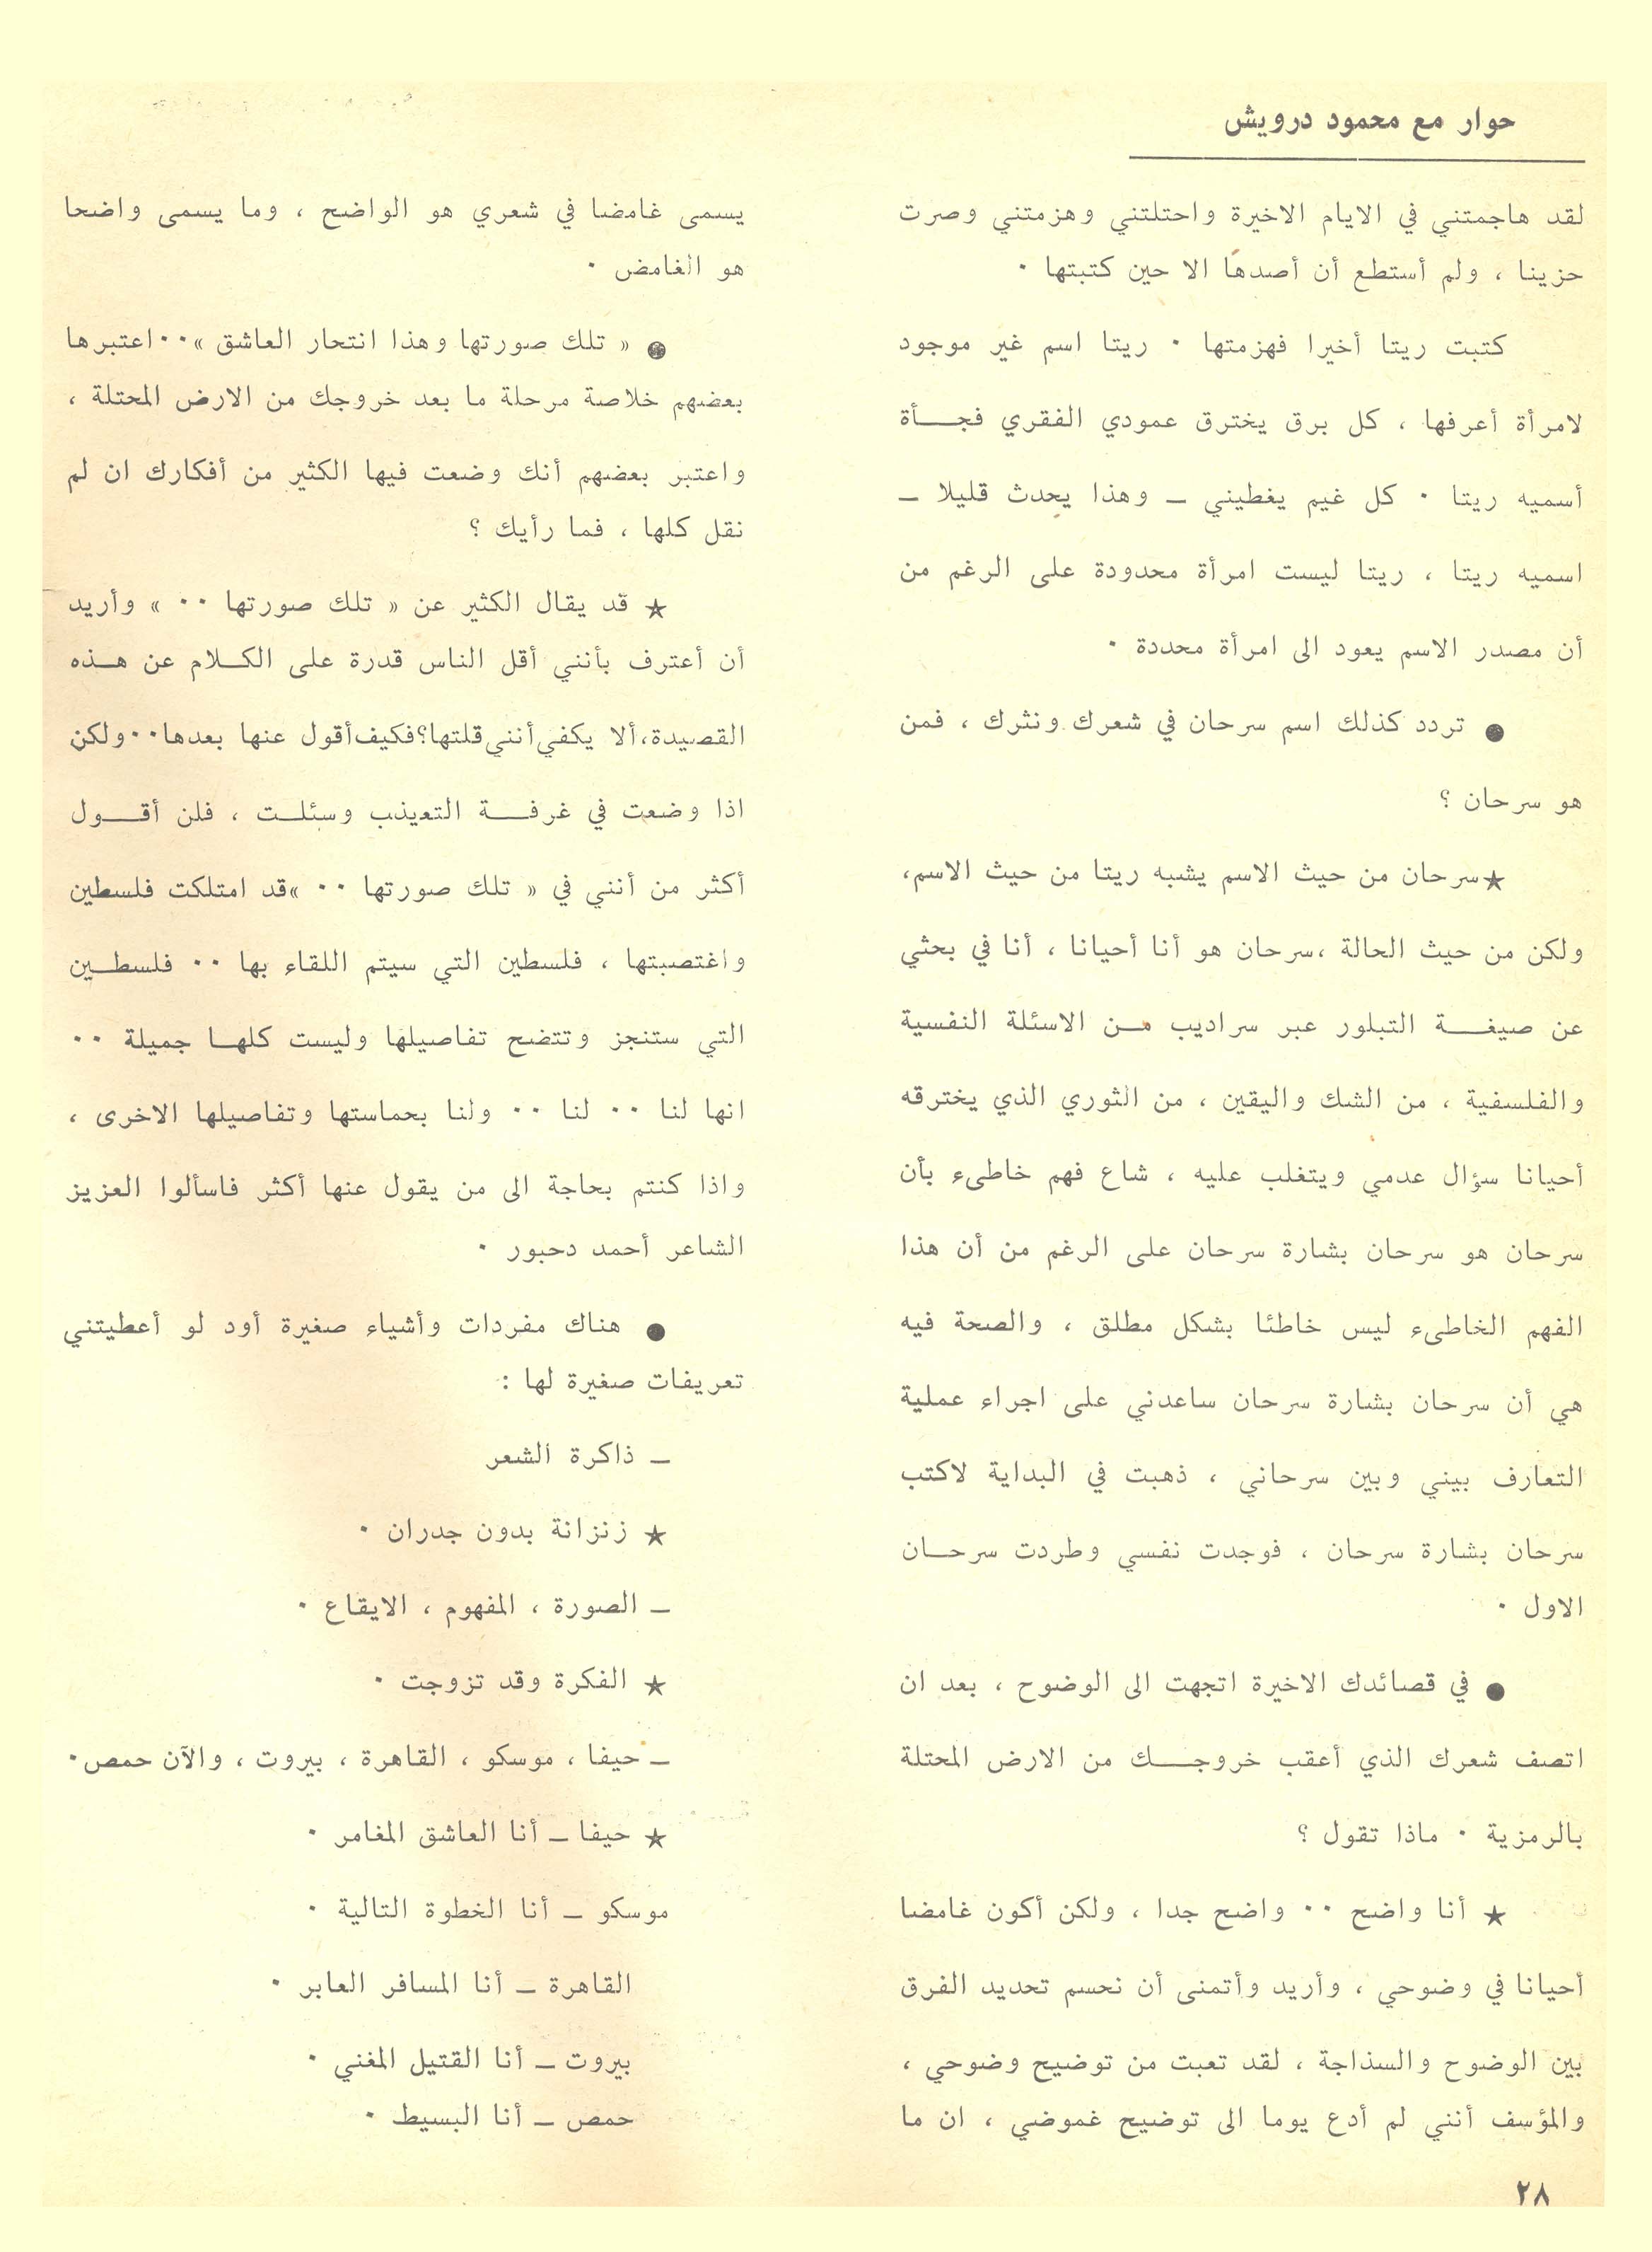 حوار مع محمود درويش
لقد هاجمتني في الايام الاخيرة واحتلتني وهزمتني وصرت
حزينا ، ولم أستطع أن أصدها الا حين كتبتها ٠
كتبت ريتا أخيرا فهزمتها ٠ ريتا اسم غير موجود
لامرأة أعرفها ، كل برق يخترق عمودي الفقري فجـــأة
أسميه ريتا ٠ كل غيم يغطيني ــ وهذا يحدث قليلا ــ
اسميه ريتا ، ريتا ليست امرأة محدودة على الرغم من
أن مصدر الاسم يعود الى امرأة محددة ٠
● تردد كذلك اسم سرحان في شعرك ونثرك ، فمن
هو سرحان ؟
★سرحان من حيث الاسم يشبه ريتا من حيث الاسم،
ولكن من حيث الحالة ،سرحان هو أنا أحيانا ، أنا في بحثي
عن صيغـــة التبلور عبر سراديب مــن الاسئلة النفسية
والفلسفية ، من الشك واليقين ، من الثوري الذي يخترقه
أحيانا سؤال عدمي ويتغلب عليه ، شاع فهم خاطىء بأن
سرحان هو سرحان بشارة سرحان على الرغم من أن هذا
الفهم الخاطىء ليس خاطئا بشكل مطلق ، والصحة فيه
هي أن سرحان بشارة سرحان ساعدني على اجراء عملية
التعارف بيني وبين سرحاني ، ذهبت في البداية لاكتب
سرحان بشارة سرحان ، فوجدت نفسي وطردت سرحــان
الاول ٠
● في قصائدك الاخيرة اتجهت الى الوضوح ، بعد ان
اتصف شعرك الذي أعقب خروجــــك من الارض المحتلة
بالرمزية ٠ ماذا تقول ؟
★ أنا واضح ٠٠ واضح جدا ، ولكن أكون غامضا
أحيانا في وضوحي ، وأريد وأتمنى أن نحسم تحديد الفرق
بين الوضوح والسذاجة ، لقد تعبت من توضيح وضوحي ،
والمؤسف أنني لم أدع يوما الى توضيح غموضي ، ان ما
يسمى غامضا في شعري هو الواضح ، وما يسمى واضحا
هو الغامض ٠
● « تلك صورتها وهذا انتحار العاشق »٠٠اعتبرها
بعضهم خلاصة مرحلة ما بعد خروجك من الارض المحتلة ،
واعتبر بعضهم أنك وضعت فيها الكثير من أفكارك ان لم
نقل كلها ، فما رأيك ؟
★ قد يقال الكثير عن « تلك صورتها ٠٠ » وأريد
أن أعترف بأنني أقل الناس قدرة على الكــلام عن هــذه
القصيدة،ألا يكفي أنني قلتها؟فكيف أقول عنها بعدها٠٠ولكن
اذا وضعت في غرفـــة التعيذب وسئلــت ، فلن أقـــول
أكثر من أنني في « تلك صورتها ٠٠ »قد امتلكت فلسطين
واغتصبتها ، فلسطين التي سيتم اللقاء بها ٠٠ فلسطــين
التي ستنجز وتتضح تفاصيلها وليست كلهــا جميلة ٠٠
انها لنا ٠٠ لنا ٠٠ ولنا بحماستها وتفاصيلها الاخرى ،
واذا كنتم بحاجة الى من يقول عنها أكثر فاسألوا العزيز
الشاعر أحمد دحبور ٠
● هناك مفردات وأشياء صغيرة أود لو أعطيتني
تعريفات صغيرة لها :
ــ ذاكرة الشعر
★ زنزانة بدون جدران ٠
ــ الصورة ، المفهوم ، الايقاع ٠
★ الفكرة وقد تزوجت ٠
ــ حيفا ، موسكو ، القاهرة ، بيروت ، والآن حمص٠
★ حيفا ــ أنا العاشق المغامر ٠
موسكو ــ أنا الخطوة التالية ٠
القاهرة ــ أنا المسافر العابر ٠
بيروت ــ أنا القتيل المغني ٠
حمص ــ أنا البسيط ٠
٢٨